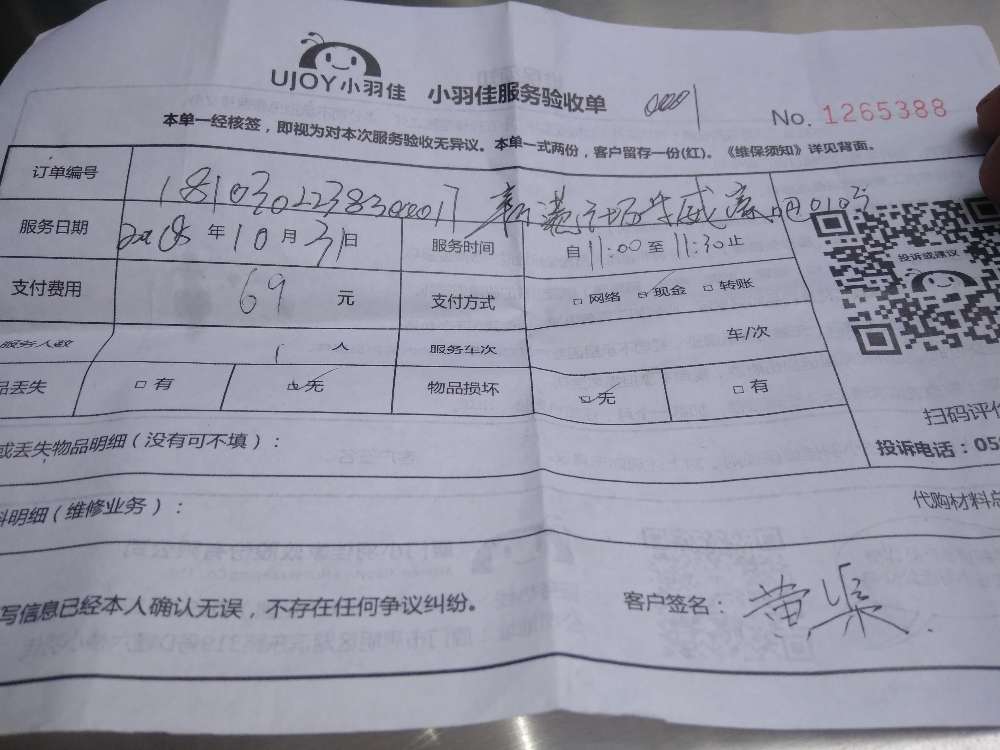 UJOY小羽佳 小羽佳服务验收单 0001 No. 1265388
本单一经核签，即视为对本次服务验收无异议。本单一式两份，客户留存一份(红)。《维保须知》详见背面。
订单编号
服务日期 年10月31日 服务时间 自11:00至11:30止
投诉或建议
支付费用 69 元 支付方式 □网络 ☑现金 □转账
服务人数 1 人 服务车次 车/次
品丢失 □有 ☑无 物品损坏 ☑无 □有
扫码评价
或丢失物品明细（没有可不填）：
投诉电话：05
料明细（维修业务）：
代购材料总
写信息已经本人确认无误，不存在任何争议纠纷。 客户签名：黄